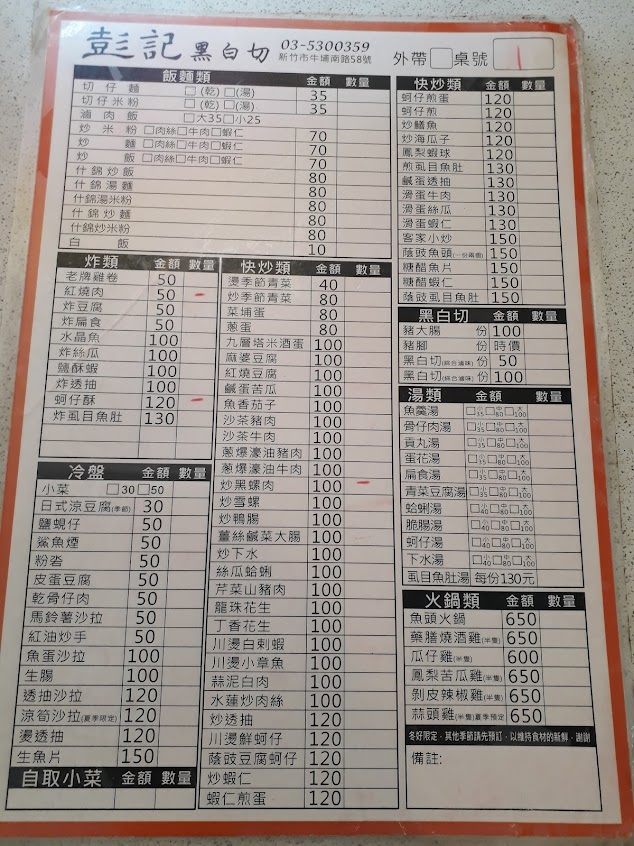 彭記黑白切
03-5300359
新竹市牛埔南路58號
外帶□桌號 1
飯麵類 金額 數量
切仔麵 □(乾)□(湯) 35
切仔米粉 □(乾)□(湯) 35
滷肉飯 □大35□小25
炒米粉□肉絲□牛肉□蝦仁 70
炒麵□肉絲□牛肉□蝦仁 70
炒飯□肉絲□牛肉□蝦仁 70
什錦炒飯 80
什錦湯麵 80
什錦湯米粉 80
什錦炒麵 80
什錦炒米粉 80
白飯 10
炸類 金額 數量
老牌雞卷 50
紅燒肉 50
炸豆腐 50
炸扁食 50
水晶魚 100
炸絲瓜 100
鹽酥蝦 100
炸透抽 100
蚵仔酥 120
炸虱目魚肚 130
冷盤 金額 數量
小菜 □30□50
日式涼豆腐(季節) 30
鹽蜆仔 50
鯊魚煙 50
粉粩 50
皮蛋豆腐 50
乾骨仔肉 50
馬鈴薯沙拉 50
紅油炒手 50
魚蛋沙拉 100
生腸 100
透抽沙拉 120
涼筍沙拉(夏季限定) 120
燙透抽 120
生魚片 150
自取小菜 金額 數量
快炒類 金額 數量
燙季節青菜 40
炒季節青菜 80
菜埔蛋 80
蔥蛋 80
九層塔米酒蛋 100
麻婆豆腐 100
紅燒豆腐 100
鹹蛋苦瓜 100
魚香茄子 100
沙茶豬肉 100
沙茶牛肉 100
蔥爆濠油豬肉 100
蔥爆濠油牛肉 100
炒黑螺肉 100
炒雪螺 100
炒鴨腸 100
薑絲鹹菜大腸 100
炒下水 100
絲瓜蛤蜊 100
芹菜山豬肉 100
龍珠花生 100
丁香花生 100
川燙白刺蝦 100
川燙小章魚 100
蒜泥白肉 100
水蓮炒肉絲 100
炒透抽 120
川燙鮮蚵仔 120
蔭豉豆腐蚵仔 120
炒蝦仁 120
蝦仁煎蛋 120
快炒類 金額 數量
蚵仔煎蛋 120
蚵仔煎 120
炒鱔魚 120
炒海瓜子 120
鳳梨蝦球 120
煎虱目魚肚 130
鹹蛋透抽 130
滑蛋牛肉 130
滑蛋絲瓜 130
滑蛋蝦仁 130
客家小炒 150
蔭豉魚頭(一份兩個) 150
糖醋魚片 150
糖醋蝦仁 150
蔭豉虱目魚肚 150
黑白切 金額 數量
豬大腸 份 100
豬腳 份 時價
黑白切(綜合滷味) 份 50
黑白切(綜合滷味) 份 100
湯類 金額 數量
魚羹湯 □小35□中80□大100
骨仔肉湯 □小35□中80□大100
貢丸湯 □小35□中80□大100
蛋花湯 □小35□中80□大100
扁食湯 □小35□中80□大100
青菜豆腐湯 □小35□中80□大100
蛤蜊湯 □小40□中80□大100
脆腸湯 □小40□中80□大100
蚵仔湯 □小40□中80□大100
下水湯 □小40□中80□大100
虱目魚肚湯 每份130元
火鍋類 金額 數量
魚頭火鍋 650
藥膳燒酒雞(半隻) 650
瓜仔雞(半隻) 600
鳳梨苦瓜雞(半隻) 650
剝皮辣椒雞(半隻) 650
蒜頭雞(半隻)夏季預定 650
冬好限定，其他季節請先預訂，以維持食材的新鮮，謝謝
備註: